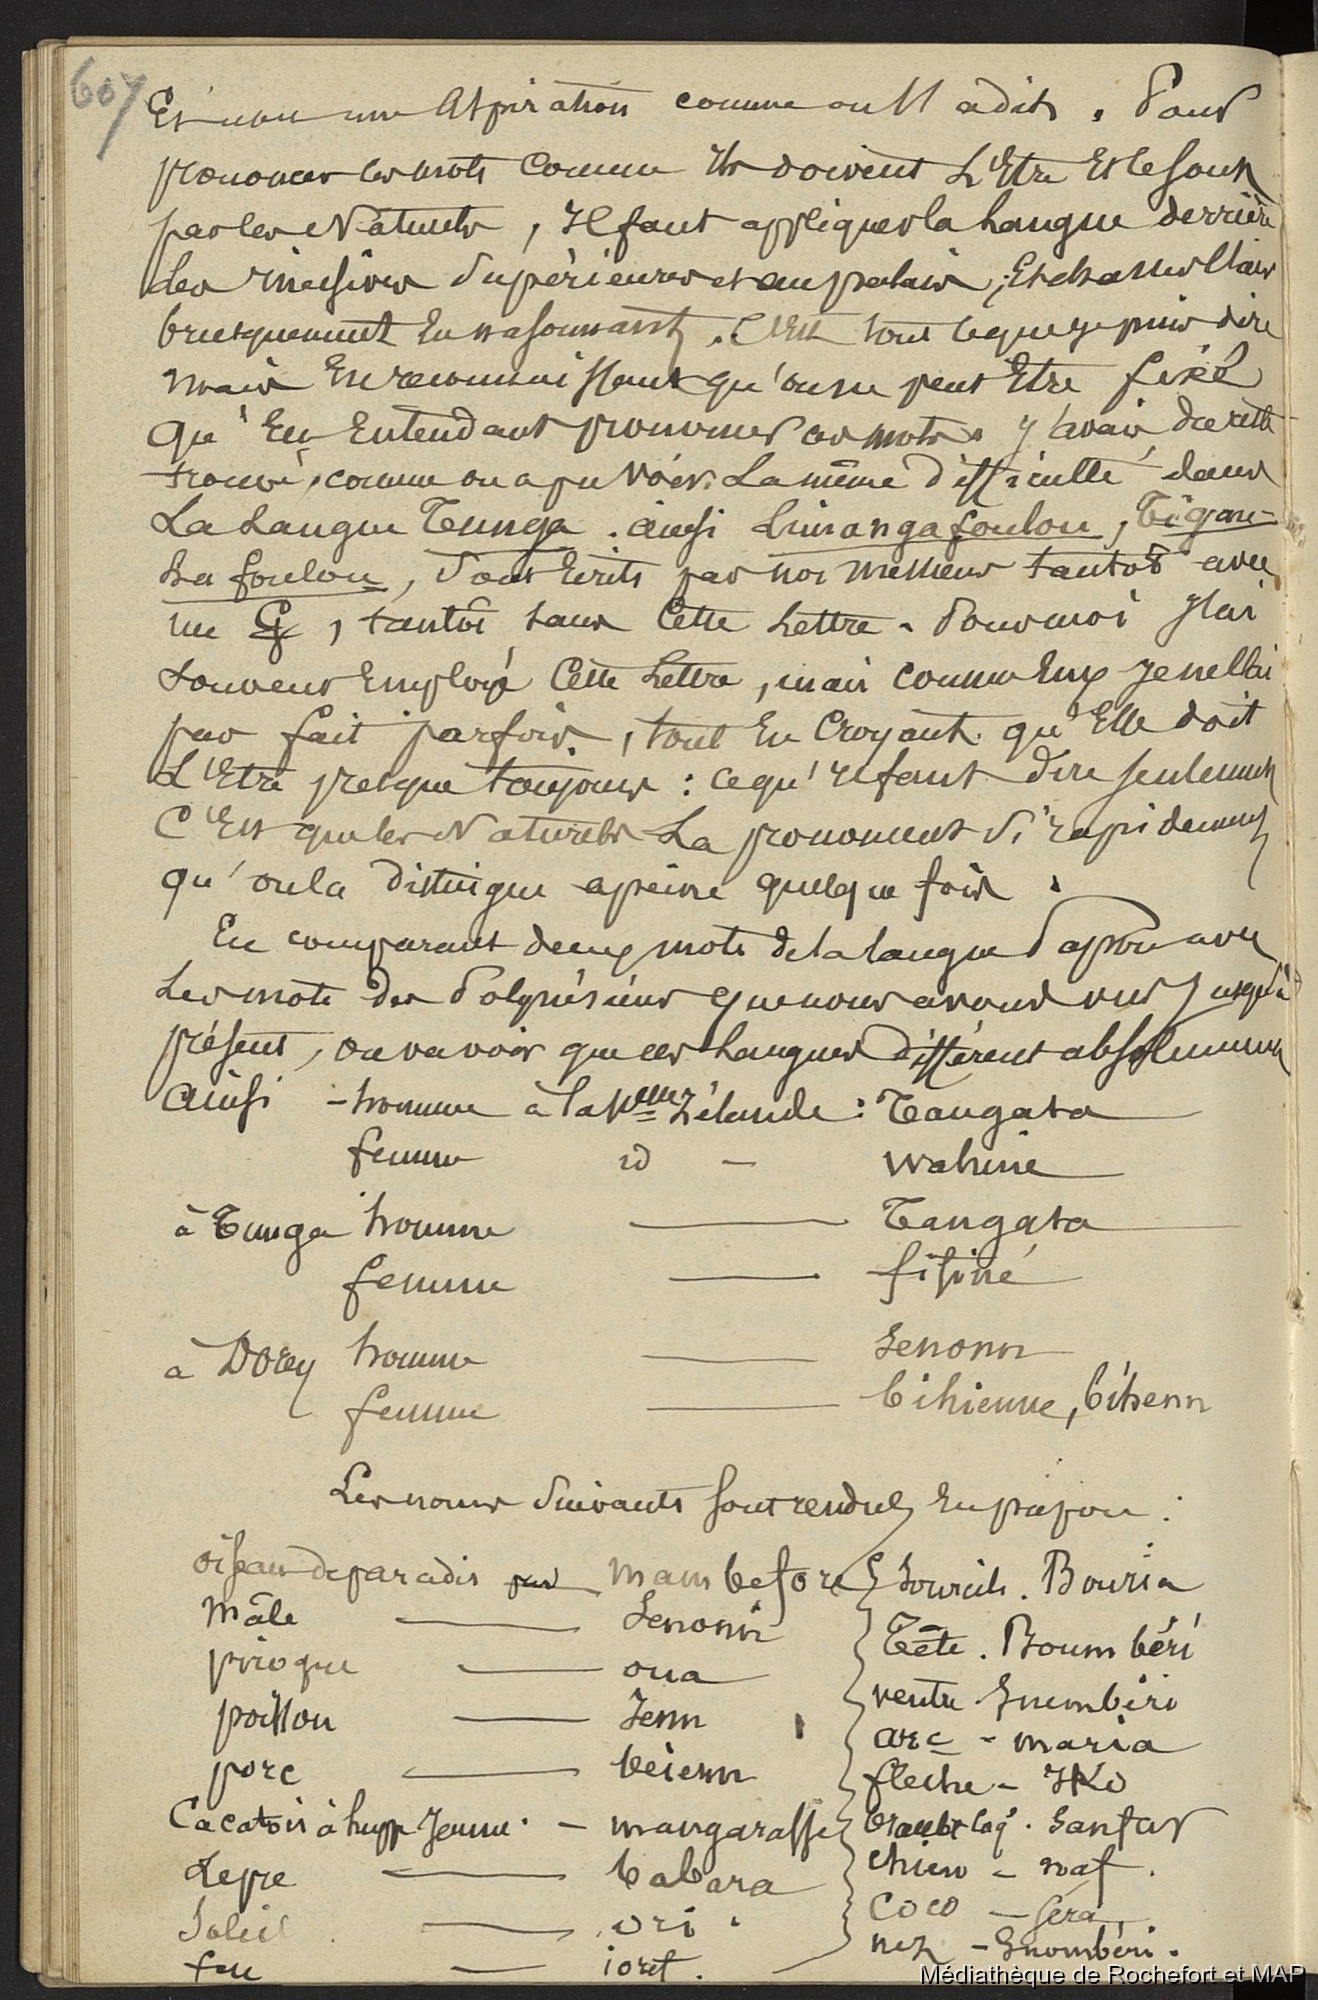 607
Et non une Aspiration comme on l'a dit. Pour
prononcer les mots comme ils doivent L'Etre Et le sont
par les Naturels, Il faut appliquer la Langue derrière
les incisives supérieures et au palais, Et chasser l'air
brusquement En nasonnant. C'Est tout ce que je puis dire
mais En reconnaissant qu'on ne peut Etre fixé
qu'En Entendant prononcer ces mots. J'avais, du reste
trouvé, comme on a pu Voir, La même difficulté dans
La Langue Tunga. Ainsi foulou,
La foulou, sont Ecrits par nos messieurs tantôt avec
un G, tantôt sans Cette Lettre. Pour moi J'ai
souvent Employé Cette Lettre, mais comme Eux Je ne l'ai
pas fait parfois, tout En Croyant qu'Elle doit
L'Etre presque toujours : ce qu'il faut dire seulement
C'Est que les Naturels La prononcent si rapidement
qu'on la distingue a peine quelque fois.
En comparant deux mots de la langue Papou avec
Les mots des Polynésiens que nous avons vus Jusqu'à
présent, on va voir que ces Langues diffèrent absolument
Ainsi - homme à la Nlle Zélande : Tangata
femme id - Wahine
à Tunga homme — Tangata
femme — fifiné
à Dorey homme — Senonn
femme — bihienne, bihenn
Les noms Suivants sont rendus En papou :
oiseau de paradis par Mambefore
Mâle — Senonn
pirogue — oua
poisson — Ienn
porc — beienn
Cacatois à huppe Jaune. — mangarasse
Lepre — babara
Soleil — ori.
feu — foret.
Sourcils. Bouria
Tête. Boumbéri
ventre Snumbiri
arc - maria
fleche - IKo
Sanfar
chien - naf.
Coco - Séra
nez - Snombéri.
Médiathèque de Rochefort et MAP